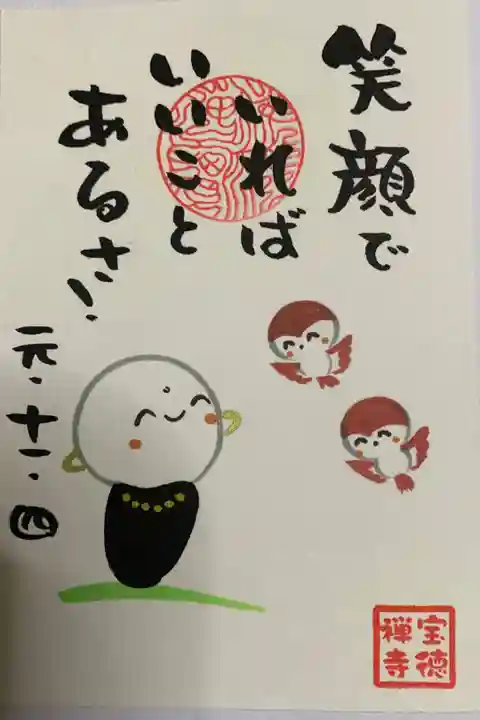 笑顔で
いれば
いいこと
あるさ!
元・十一・四
宝徳
禅寺